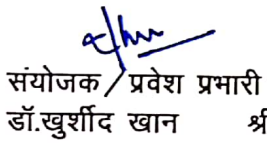 संयोजक / प्रवेश प्रभारी
डॉ.खुर्शीद खान श्री